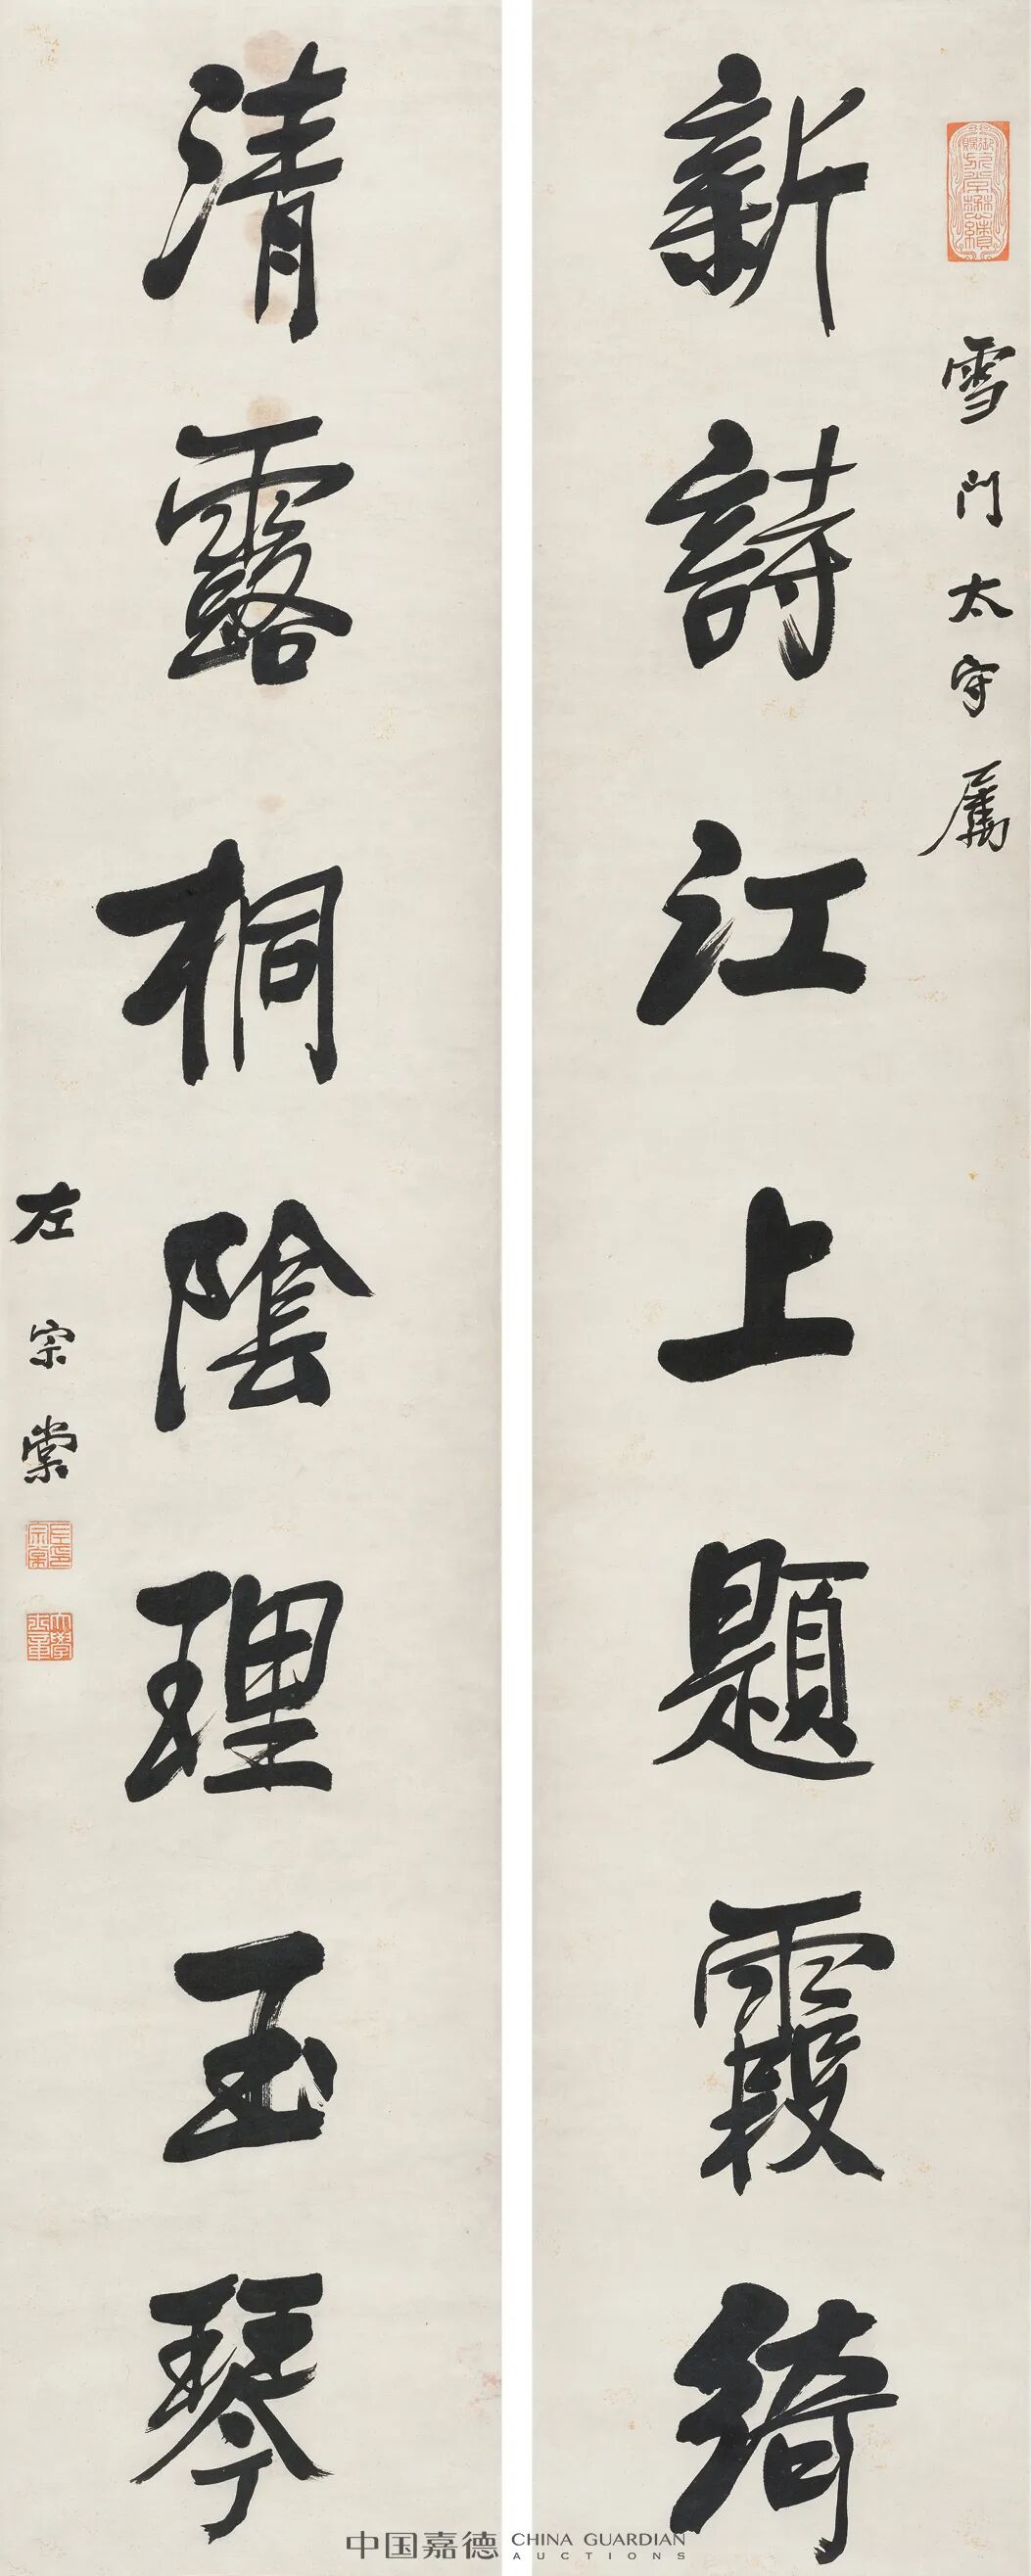 雪門太守屬
新詩江上題霞綺
清露桐陰理玉琴
左宗棠
中国嘉德 CHINA GUARDIAN AUCTIONS